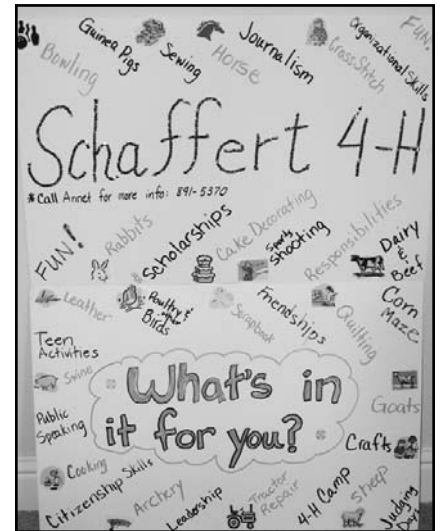 Bowling
Guinea Pigs
Sewing
Horse
Journalism
Cross Stitch
Organizational Skills
FUN!
Schaffert 4-H
*Call Annet for more info: 891-5370
FUN!
Rabbits
Scholarships
Cake Decorating
Sports Shooting
Responsibilities
Dairy & Beef
Leather
Poultry & other Birds
Scrapbook
Friendships
Quilting
Corn Maze
Teen Activities
Swine
What's in
it for you?
Goats
Public Speaking
Crafts
Cooking
Citizenship Skills
Archery
Leadership
Tractor Repair
4-H Camp
Sheep
Judging